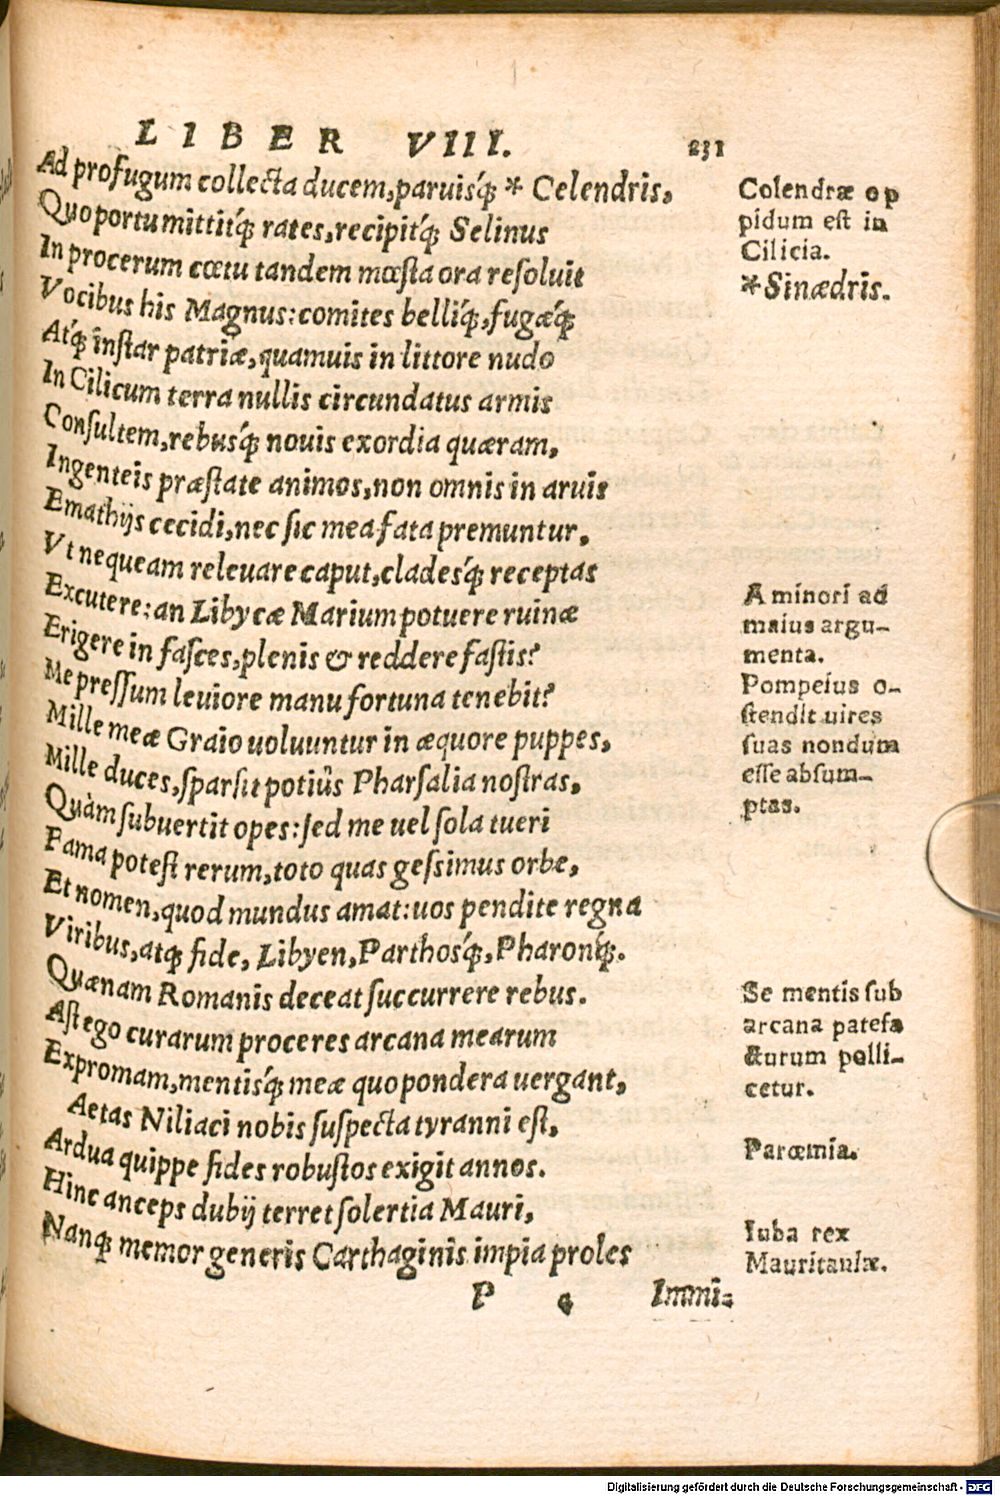 LIBER VIII. 231
Ad profugum collecta ducem, paruisq́; * Celendris,
Quo portu mittitq́; rates, recipitq́; Selinus
In procerum cœtu tandem mœsta ora resoluit
Vocibus his Magnus: comites belliq́;, fugæq́;
Atq́; instar patriæ, quamuis in littore nudo
In Cilicum terra nullis circundatus armis
Consultem, rebusq́; nouis exordia quæram,
Ingenteis præstate animos, non omnis in aruis
Emathijs cecidi, nec sic mea fata premuntur,
Vt nequeam releuare caput, cladesq́; receptas
Excutere: an Libycæ Marium potuere ruinæ
Erigere in fasces, plenis & reddere fastis?
Me pressum leuiore manu fortuna tenebit?
Mille meæ Graio uoluuntur in æquore puppes,
Mille duces, sparsit potiùs Pharsalia nostras,
Quàm subuertit opes: sed me uel sola tueri
Fama potest rerum, toto quas gessimus orbe,
Et nomen, quod mundus amat: uos pendite regna
Viribus, atq; fide, Libyen, Parthosq́;, Pharonq́;.
Quænam Romanis deceat succurrere rebus.
Ast ego curarum proceres arcana mearum
Expromam, mentisq́; meæ quo pondera uergant,
Aetas Niliaci nobis suspecta tyranni est,
Ardua quippe fides robustos exigit annos.
Hinc anceps dubij terret solertia Mauri,
Nanq; memor generis Carthaginis impia proles
P 4 Immi=
Colendræ op
pidum est in
Cilicia.
*Sinædris.
A minori ad
maius argu-
menta.
Pompeius o-
stendit uires
suas nondum
esse absum-
ptas.
Se mentis sub
arcana patefa
cturum polli-
cetur.
Parœmia.
Iuba rex
Mauritaniæ.
Digitalisierung gefördert durch die Deutsche Forschungsgemeinschaft - DFG